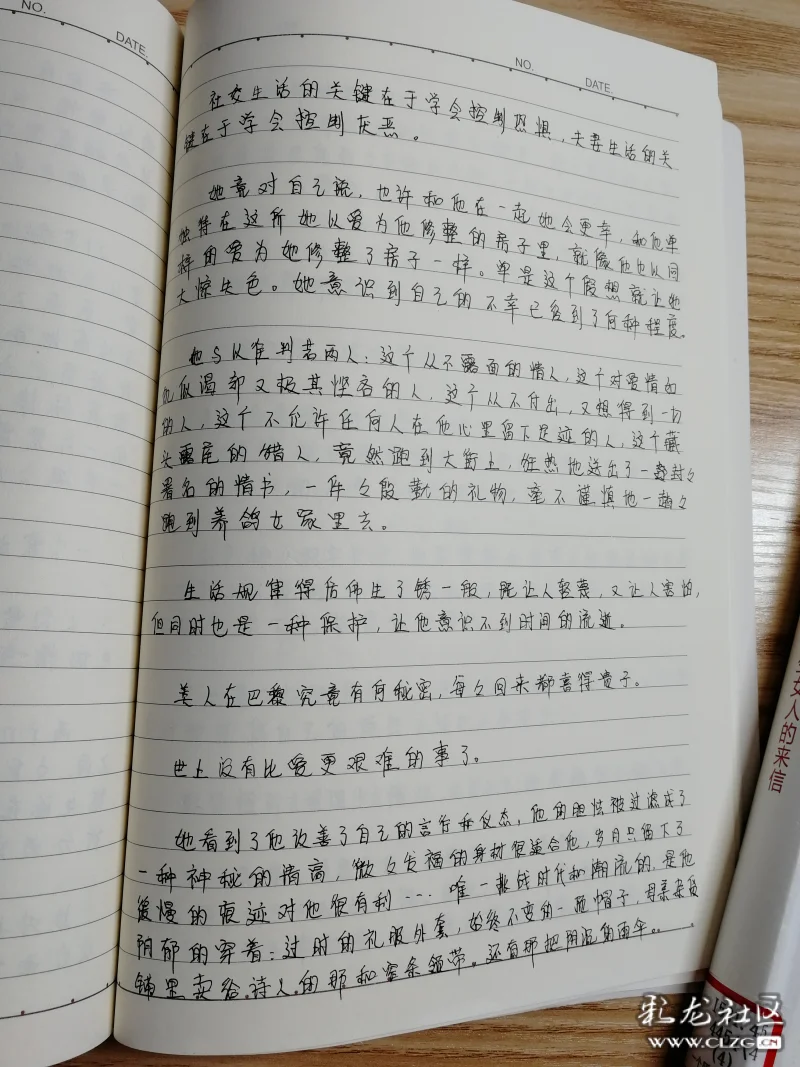 NO.
DATE.
NO.
DATE.
社交生活的关键在于学会控制恐惧，夫妻生活的关
键在于学会控制厌恶。
她竟对自己说，也许和他在一起她会更幸，和他单
独待在这所她以爱为他修整的房子里，就像他也以同
样的爱为她修整了房子一样。单是这个假想就让她
大惊失色。她意识到自己的不幸已经到了何种程度。
他与从前判若两人：这个从不露面的情人，这个对爱情如
饥似渴却又极其悭吝的人，这个从不付出，又想得到一切
的人，这个不允许任何人在他心里留下足迹的人，这个藏
头露尾的猎人，竟然跑到大街上，狂热地送出了一封封々
署名的情书，一件々殷勤的礼物，毫不谨慎地一趟々
跑到养鸽女家里去。
生活规律得后佛生了锈一般，既让人轻蔑，又让人害怕，
但同时也是一种保护，让他意识不到时间的流逝。
美人在巴黎究竟有何秘密，每々回来都喜得贵子。
世上没有比爱更艰难的事了。
她看到了他改善了自己的言行和仪态，他的胆怯被过滤成了
一种神秘的清高，微々发福的身材很适合他，岁月只留下了
缓慢的痕迹对他很有利… 唯一挑战时代和潮流的，是他
阴郁的穿着：过时的礼服外套，始终不变的一顶帽子，母亲杂货
铺里卖给诗人的那种窄条领带。还有那把阴混的雨伞……
女人的来信
彩龙社区
WWW.CLZG.CN